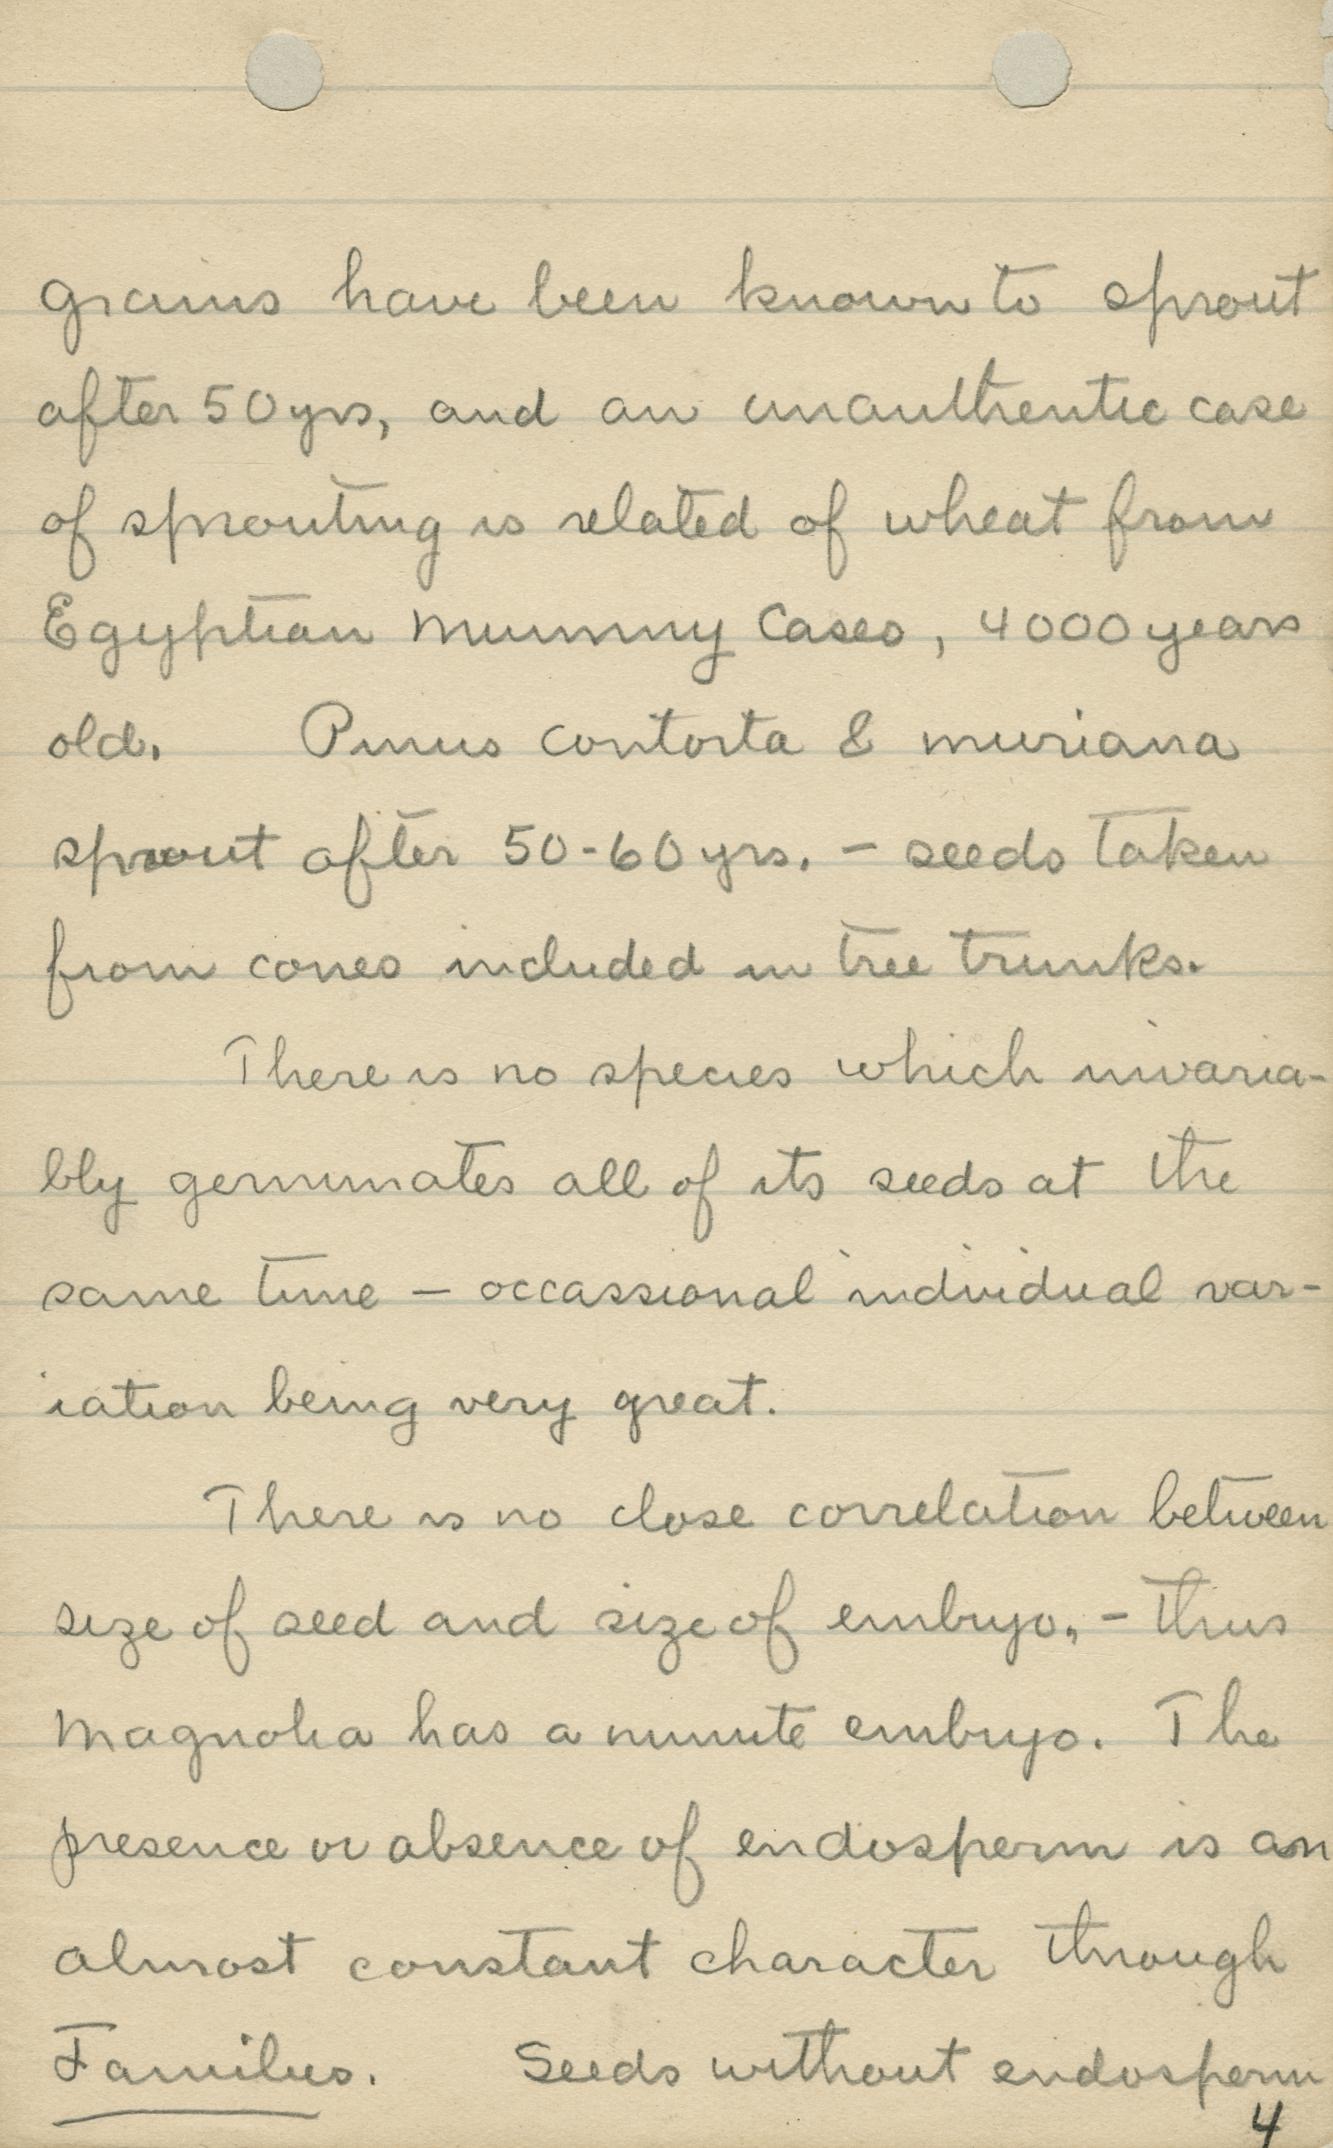 grains have been known to sprout
after 50 yrs, and an unauthentic case
of sprouting is related of wheat from
Egyptian Mummy Cases, 4000 years
old. Pinus contorta & muriana
sprout after 50-60 yrs. – seeds taken
from cones included in tree trunks.
There is no species which invaria-
bly germinates all of its seeds at the
same time – occassional individual var-
iation being very great.
There is no close correlation between
size of seed and size of embryo, – thus
Magnolia has a minute embryo. The
presence or absence of endosperm is an
almost constant character through
Families. Seeds without endosperm
4